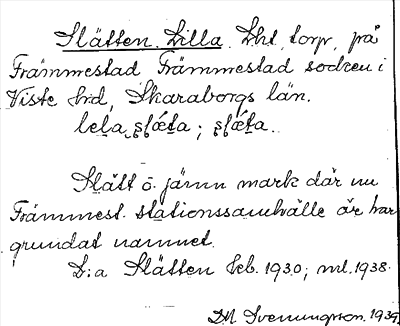 Slätten, Lilla. Lht, torp, på
Främmestad Främmestad socken i
Viste hd, Skaraborgs län.
Slätt o. jämn mark där nu
Främmest. stationssamhälle är har
grundat namnet.
L:a Slätten Geb. 1930; ml. 1938.
D.H. Svenungsson. 1939.